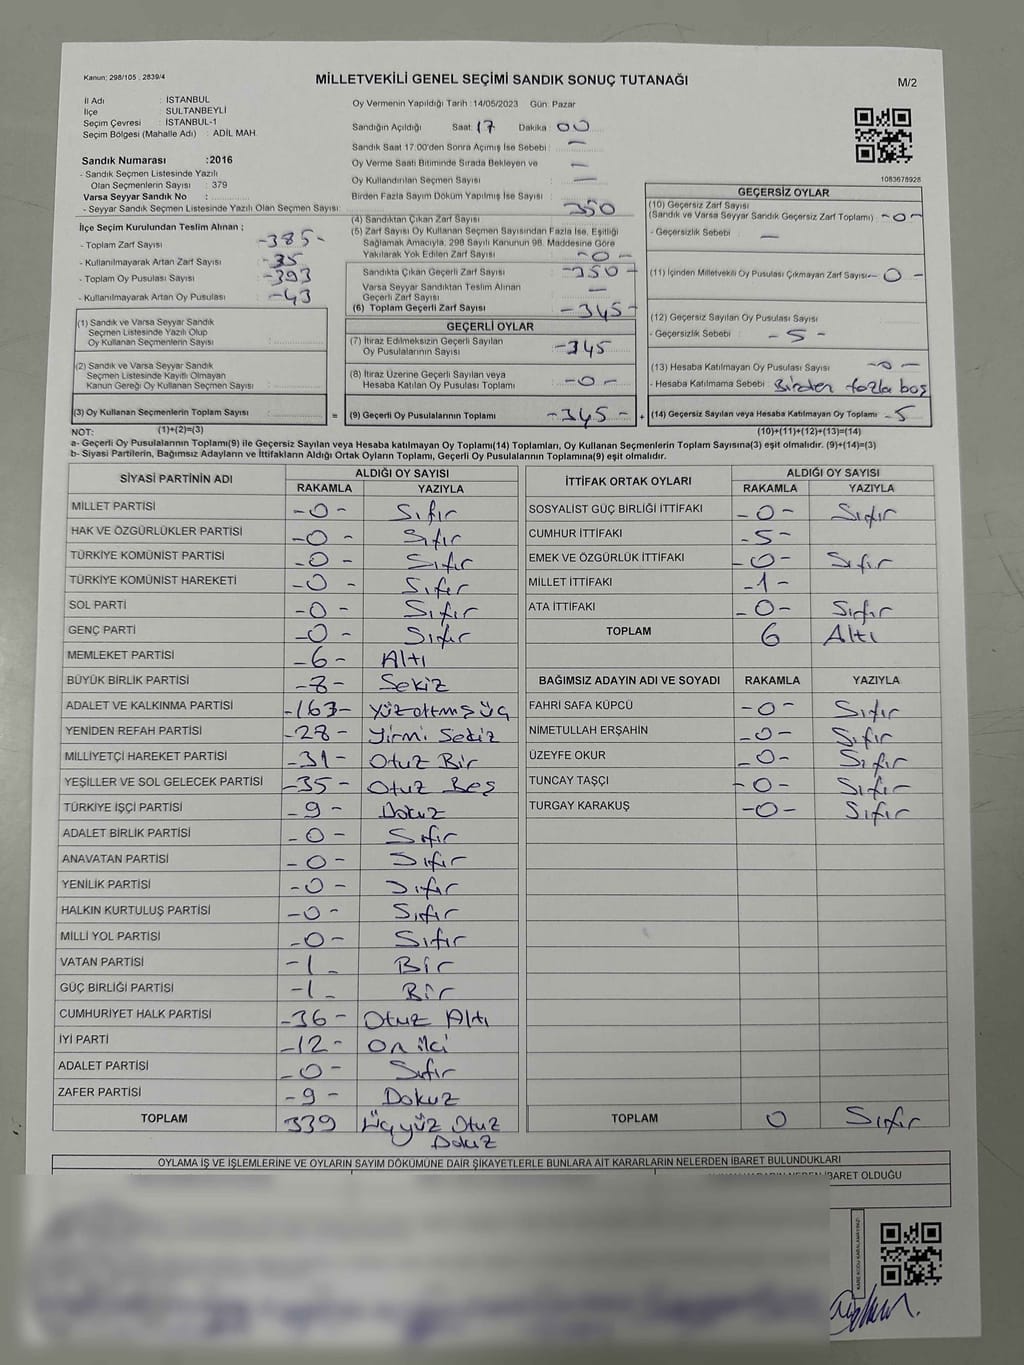 Kanun: 298/105 , 2839/4
MİLLETVEKİLİ GENEL SEÇİMİ SANDIK SONUÇ TUTANAĞI
M/2
İl Adı : İSTANBUL
İlçe : SULTANBEYLİ
Seçim Çevresi : İSTANBUL-1
Seçim Bölgesi (Mahalle Adı) : ADİL MAH.
Sandık Numarası :2016
- Sandık Seçmen Listesinde Yazılı
Olan Seçmenlerin Sayısı : 379
Varsa Seyyar Sandık No :
- Seyyar Sandık Seçmen Listesinde Yazılı Olan Seçmen Sayısı:
Oy Vermenin Yapıldığı Tarih :14/05/2023 Gün: Pazar
Sandığın Açıldığı Saat: 17 Dakika: 00
Sandık Saat 17:00'den Sonra Açımış İse Sebebi : —
Oy Verme Saati Bitiminde Sırada Bekleyen ve —
Oy Kullandırılan Seçmen Sayısı : —
Birden Fazla Sayım Döküm Yapılmış İse Sayısı :
1083678928
İlçe Seçim Kurulundan Teslim Alınan ;
- Toplam Zarf Sayısı : -385-
- Kullanılmayarak Artan Zarf Sayısı : -35
- Toplam Oy Pusulası Sayısı : -393
- Kullanılmayarak Artan Oy Pusulası : -43
(1) Sandık ve Varsa Seyyar Sandık
Seçmen Listesinde Yazılı Olup
Oy Kullanan Seçmenlerin Sayısı :
(2) Sandık ve Varsa Seyyar Sandık
Seçmen Listesinde Kayıtlı Olmayan
Kanun Gereği Oy Kullanan Seçmen Sayısı :
(3) Oy Kullanan Seçmenlerin Toplam Sayısı :
(1)+(2)=(3)
(4) Sandıktan Çıkan Zarf Sayısı : 350
(5) Zarf Sayısı Oy Kullanan Seçmen Sayısından Fazla İse, Eşitliği
Sağlamak Amacıyla, 298 Sayılı Kanunun 98. Maddesine Göre
Yakılarak Yok Edilen Zarf Sayısı : -0-
Sandıkta Çıkan Geçerli Zarf Sayısı : -350-
Varsa Seyyar Sandıktan Teslim Alınan
Geçerli Zarf Sayısı : —
(6) Toplam Geçerli Zarf Sayısı : -345-
GEÇERLİ OYLAR
(7) İtiraz Edilmeksizin Geçerli Sayılan
Oy Pusulalarının Sayısı : -345
(8) İtiraz Üzerine Geçerli Sayılan veya
Hesaba Katılan Oy Pusulası Toplamı : -0-
= (9) Geçerli Oy Pusulalarının Toplamı : -345- +
GEÇERSİZ OYLAR
(10) Geçersiz Zarf Sayısı
(Sandık ve Varsa Seyyar Sandık Geçersiz Zarf Toplamı) : -0-
- Geçersizlik Sebebi : —
(11) İçinden Milletvekili Oy Pusulası Çıkmayan Zarf Sayısı: -0-
(12) Geçersiz Sayılan Oy Pusulası Sayısı
- Geçersizlik Sebebi : -5-
(13) Hesaba Katılmayan Oy Pusulası Sayısı : -0-
- Hesaba Katılmama Sebebi : Birden fazla boş
(14) Geçersiz Sayılan veya Hesaba Katılmayan Oy Toplamı : -5
(10)+(11)+(12)+(13)=(14)
NOT:
a- Geçerli Oy Pusulalarının Toplamı(9) ile Geçersiz Sayılan veya Hesaba katılmayan Oy Toplamı(14) Toplamları, Oy Kullanan Seçmenlerin Toplam Sayısına(3) eşit olmalıdır. (9)+(14)=(3)
b- Siyasi Partilerin, Bağımsız Adayların ve İttifakların Aldığı Ortak Oyların Toplamı, Geçerli Oy Pusulalarının Toplamına(9) eşit olmalıdır.
SİYASİ PARTİNİN ADI
ALDIĞI OY SAYISI
RAKAMLA YAZIYLA
MİLLET PARTİSİ -0- Sıfır
HAK VE ÖZGÜRLÜKLER PARTİSİ -0- Sıfır
TÜRKİYE KOMÜNİST PARTİSİ -0- Sıfır
TÜRKİYE KOMÜNİST HAREKETİ -0- Sıfır
SOL PARTİ -0- Sıfır
GENÇ PARTİ -0- Sıfır
MEMLEKET PARTİSİ -6- Altı
BÜYÜK BİRLİK PARTİSİ -8- Sekiz
ADALET VE KALKINMA PARTİSİ -163- Yüzaltmışüç
YENİDEN REFAH PARTİSİ -28- Yirmi Sekiz
MİLLİYETÇİ HAREKET PARTİSİ -31- Otuz Bir
YEŞİLLER VE SOL GELECEK PARTİSİ -35- Otuz Beş
TÜRKİYE İŞÇİ PARTİSİ -9- Dokuz
ADALET BİRLİK PARTİSİ -0- Sıfır
ANAVATAN PARTİSİ -0- Sıfır
YENİLİK PARTİSİ -0- Sıfır
HALKIN KURTULUŞ PARTİSİ -0- Sıfır
MİLLİ YOL PARTİSİ -0- Sıfır
VATAN PARTİSİ -1- Bir
GÜÇ BİRLİĞİ PARTİSİ -1- Bir
CUMHURİYET HALK PARTİSİ -36- Otuz Altı
İYİ PARTİ -12- On iki
ADALET PARTİSİ -0- Sıfır
ZAFER PARTİSİ -9- Dokuz
TOPLAM 339 Üçyüz Otuz
Dokuz
İTTİFAK ORTAK OYLARI
ALDIĞI OY SAYISI
RAKAMLA YAZIYLA
SOSYALİST GÜÇ BİRLİĞİ İTTİFAKI -0- Sıfır
CUMHUR İTTİFAKI -5-
EMEK VE ÖZGÜRLÜK İTTİFAKI -0- Sıfır
MİLLET İTTİFAKI -1-
ATA İTTİFAKI -0- Sıfır
TOPLAM 6 Altı
BAĞIMSIZ ADAYIN ADI VE SOYADI RAKAMLA YAZIYLA
FAHRİ SAFA KÜPCÜ -0- Sıfır
NİMETULLAH ERŞAHİN -0- Sıfır
ÜZEYFE OKUR -0- Sıfır
TUNCAY TAŞÇI -0- Sıfır
TURGAY KARAKUŞ -0- Sıfır
TOPLAM 0 Sıfır
OYLAMA İŞ VE İŞLEMLERİNE VE OYLARIN SAYIM DÖKÜMÜNE DAİR ŞİKAYETLERLE BUNLARA AİT KARARLARIN NELERDEN İBARET BULUNDUKLARI
İBARET OLDUĞU